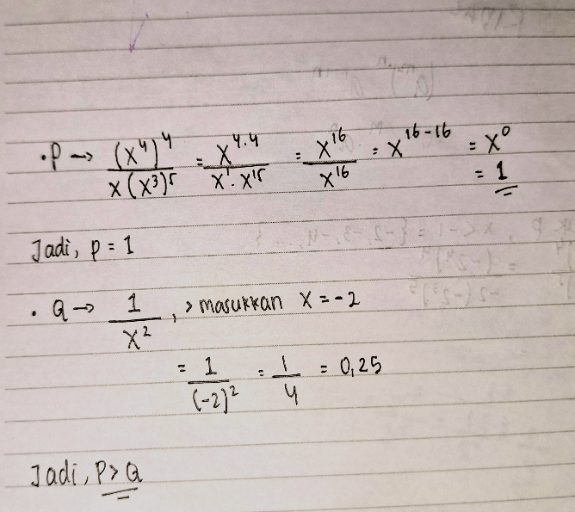 • P → (x⁴)⁴ / x(x³)⁵ = x⁴·⁴ / x¹·x¹⁵ = x¹⁶ / x¹⁶ = x¹⁶⁻¹⁶ = x⁰
= 1
Jadi, P = 1
• Q → 1 / x² , > masukkan x = -2
= 1 / (-2)² = 1 / 4 = 0,25
Jadi, P > Q